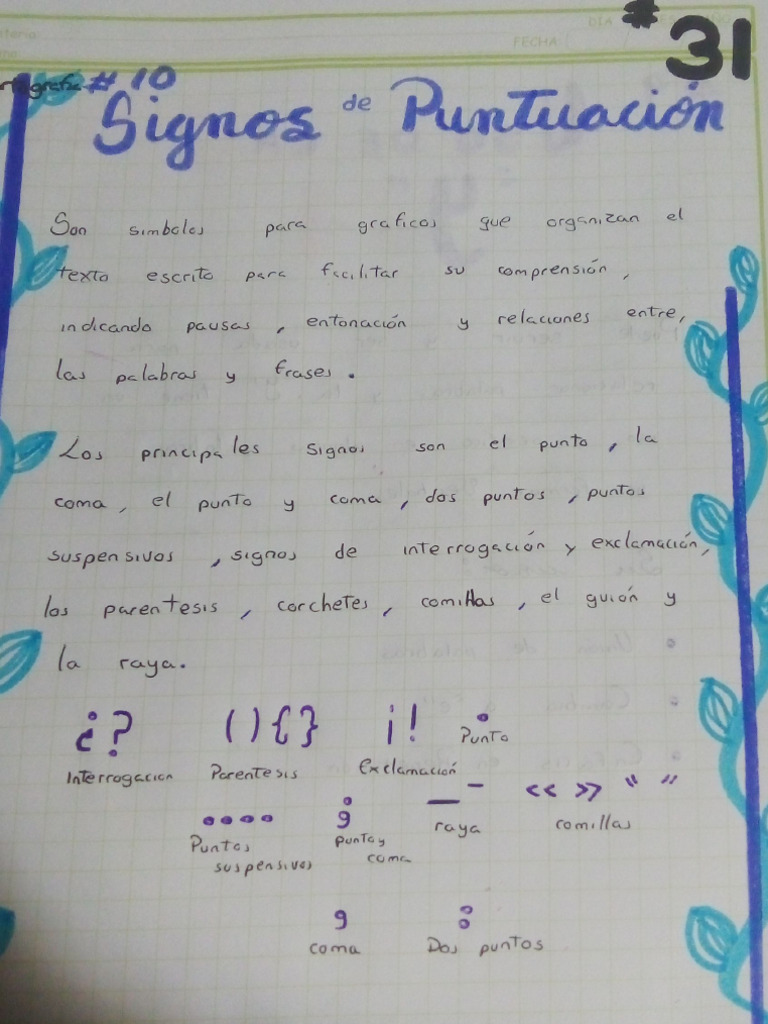 DIA
FECHA
#31
#10
Signos de Puntuación
Son simbolos para graficos que organizan el
texto escrito para facilitar su comprensión,
indicando pausas, entonación y relaciones entre,
las palabras y frases.
Los principales signos son el punto, la
coma, el punto y coma, dos puntos, puntos
suspensivos, signos de interrogación y exclamación,
los parentesis, corchetes, comillas, el guión y
la raya.
¿? () {} ¡! .
Interrogacion Parentesis Exclamación Punto
.... ; — - « » “ ”
Puntos suspensivos punto y coma raya comillas
, :
coma Dos puntos